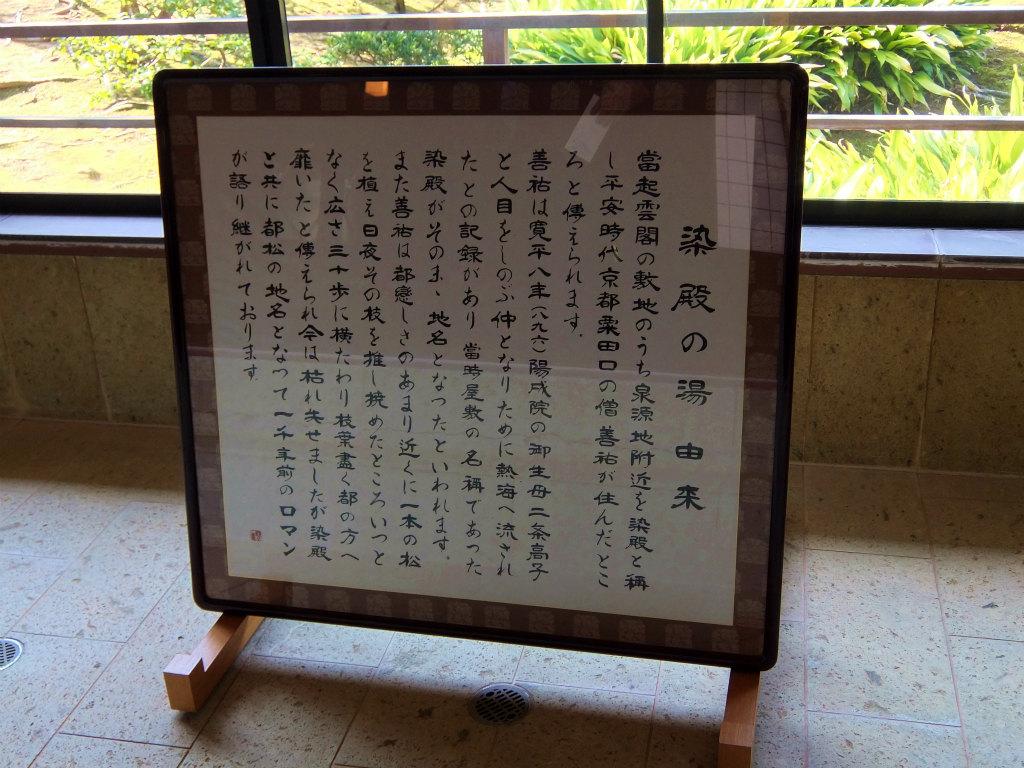 染殿の湯 由来
當起雲閣の敷地のうち泉源地附近を染殿と稱
し平安時代京都粟田口の僧 善祐が住んだとこ
ろと傳えられます。
善祐は寛平八年(八九六)陽成院の御生母二条高子
と人目をしのぶ仲となりために熱海へ流され
たとの記録があり 當時屋敷の名稱であった
染殿がそのまゝ地名となったといわれます。
また善祐は都戀しさのあまり近くに一本の松
を植え日夜その枝を推し撓めたところいつと
なく広さ三十歩に横たわり枝葉盡く都の方へ
靡いたと傳えられ今は枯れ失せましたが染殿
と共に都松の地名となって一千年前のロマン
が語り継がれております。